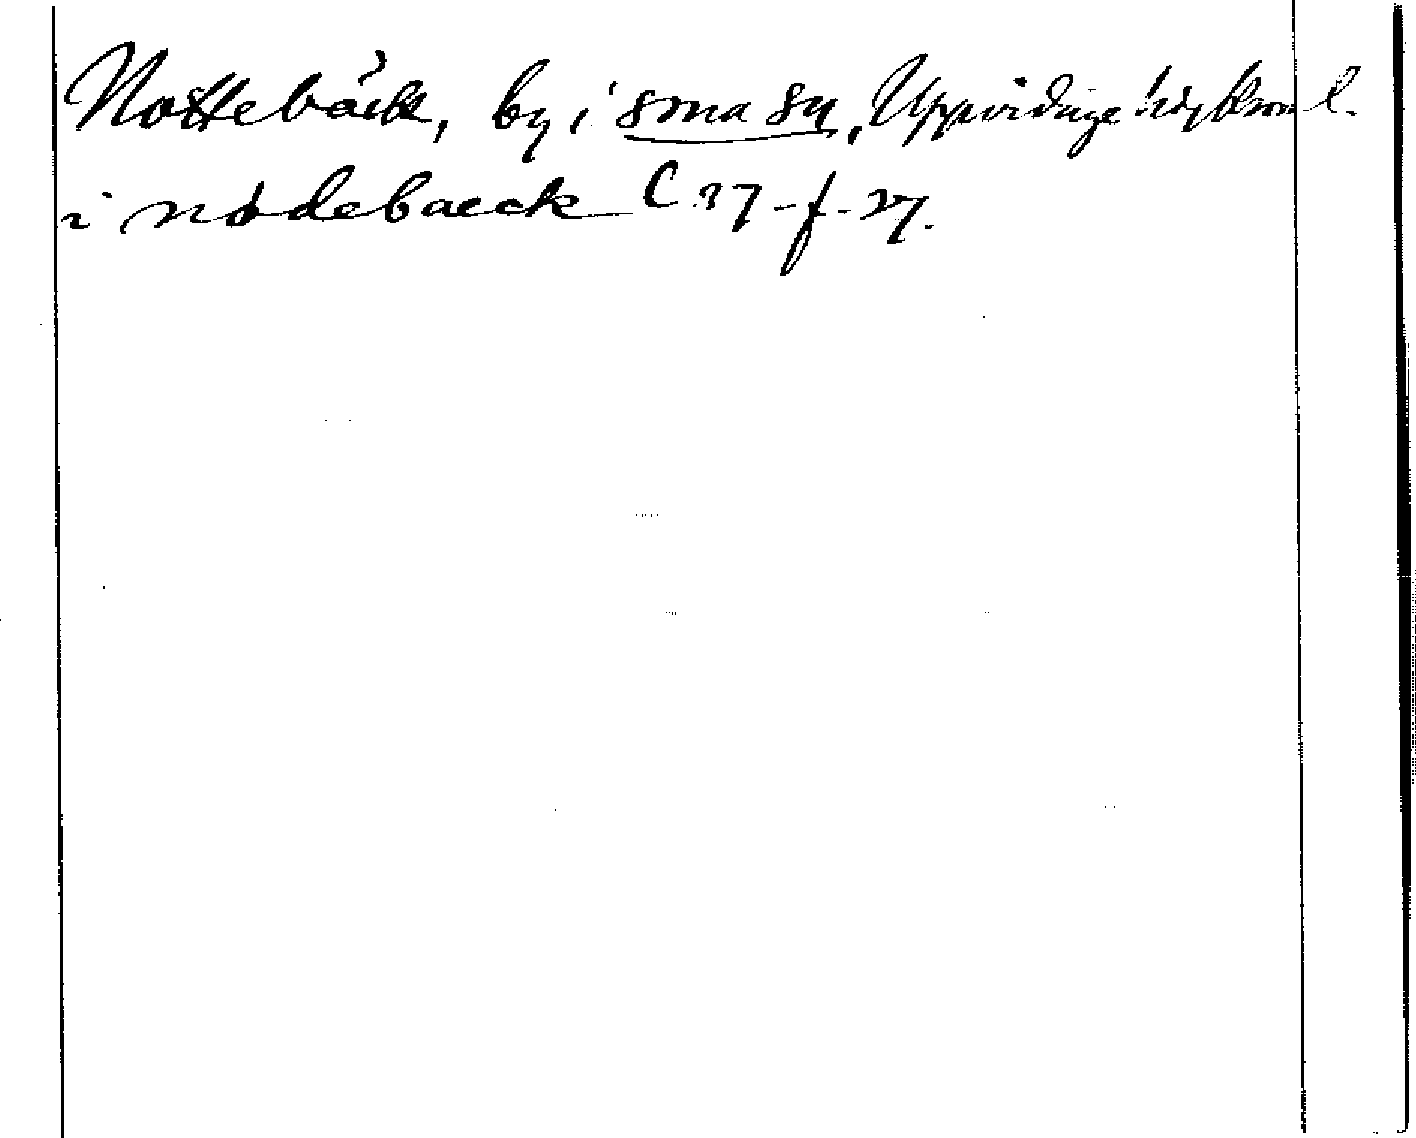 Nottebäck, by i sma sn, Uppvidinge hd, Kron l.
i nødebaeck C 37-f-27.